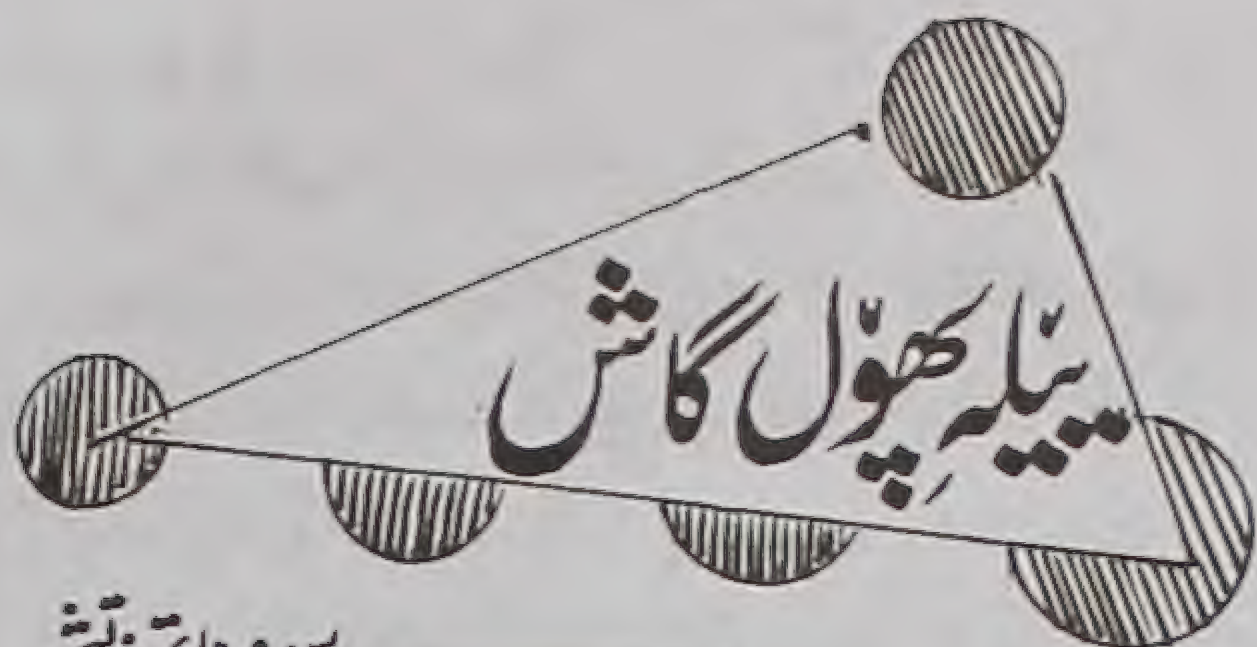 ییٚلہِ پھۄل گاش